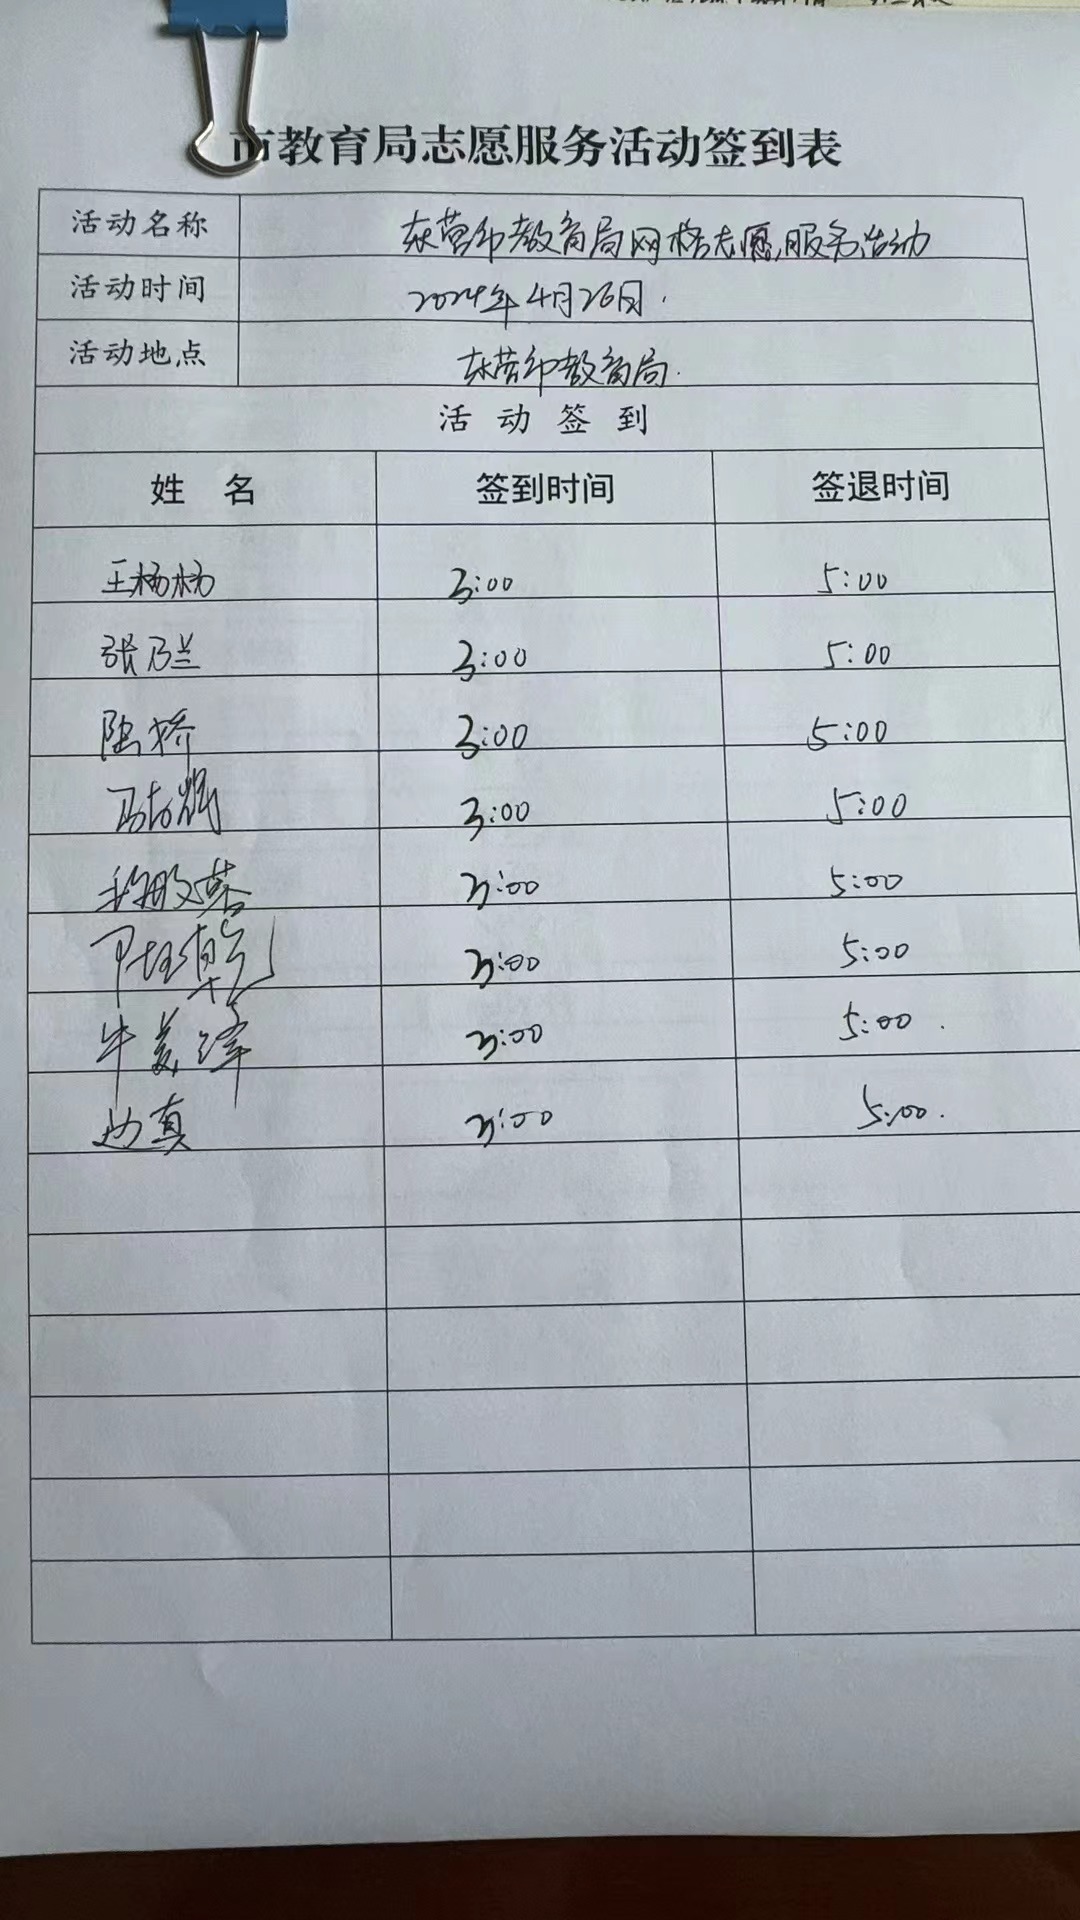 市教育局志愿服务活动签到表
活动名称 东营市教育局网格志愿服务活动
活动时间 2024年4月26日.
活动地点 东营市教育局.
活动签到
姓 名 签到时间 签退时间
王杨杨 3:00 5:00
张乃兰 3:00 5:00
陆桥 3:00 5:00
3:00 5:00
3:00 5:00
3:00 5:00
牛美泽 3:00 5:00.
边真 3:00 5:00.